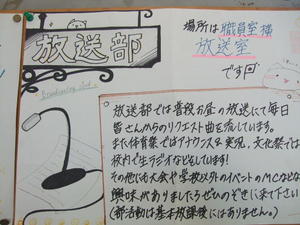 放送部
Broadcasting club
場所は職員室横
放送室
です
放送部では普段お昼の放送にて毎日
皆さんからのリクエスト曲を流しています。
また体育祭ではアナウンス&実況、文化祭では
校内で生ラジオなどをしています!
その他にも大会や学校以外のイベントのMCなどな
興味がありましたらぜひのぞきに来て下さい
(部活動は基本放課後にはありません。)